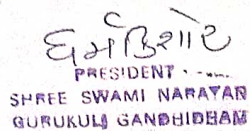 ધર્મકિશોર
PRESIDENT
SHREE SWAMI NARAYAN
GURUKUL GANDHIDHAM